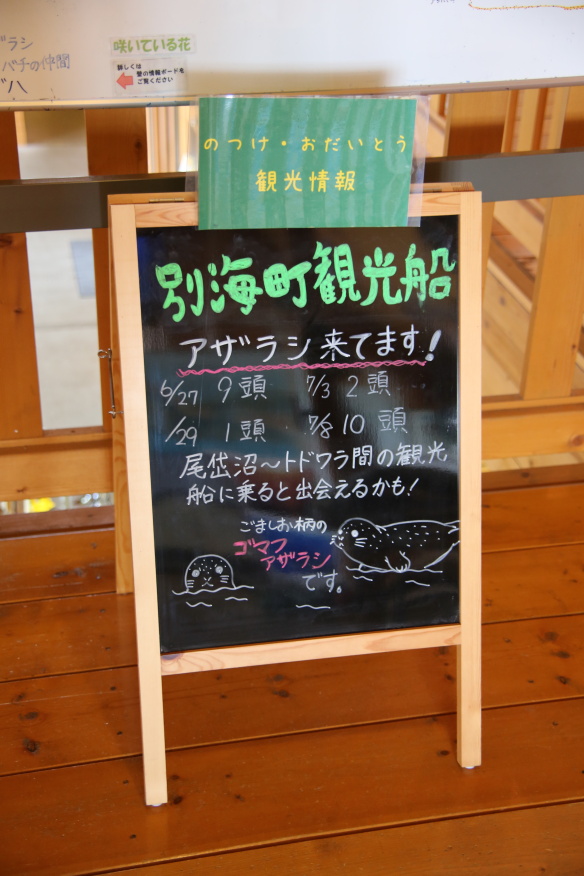 咲いている花
詳しくは
壁の情報ボードを
ご覧ください
のつけ・おだいとう
観光情報
別海町観光船
アザラシ来てます!
6/27 9頭 7/3 2頭
6/29 1頭 7/8 10頭
尾岱沼～トドワラ間の観光
船に乗ると出会えるかも!
ごましお柄の
ゴマフ
アザラシ
です。